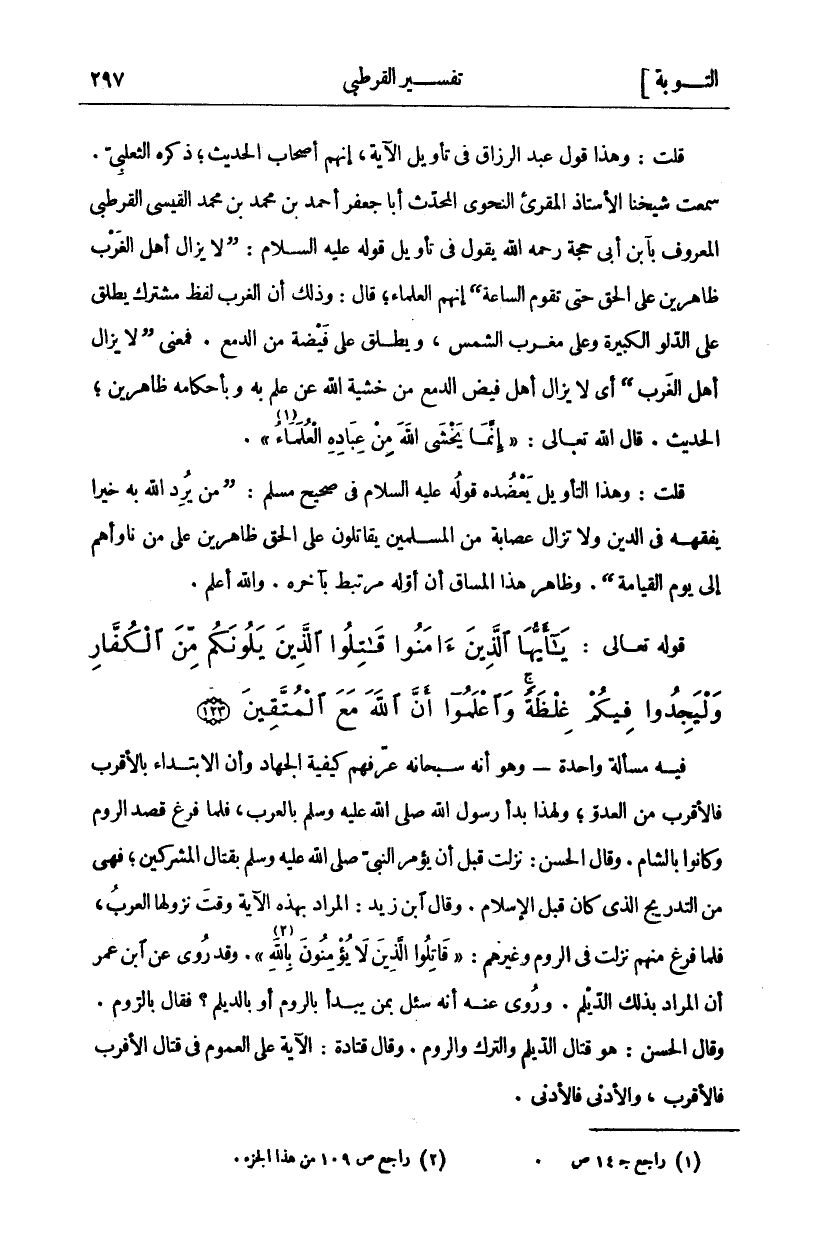 التـــوبة ]
تفســـير القرطبي
٢٩٧
قلت : وهذا قول عبد الرزاق فى تأويل الآية، إنهم أصحاب الحديث؛ ذكره الثعلبىّ .
سمعت شيخنا الأستاذ المقرئ النحوى المحدّث أبا جعفر أحمد بن محمد بن محمد القيسى القرطبى
المعروف بآبن أبى حجة رحمه الله يقول فى تأويل قوله عليه السلام : ”لا يزال أهل الغَرْب
ظاهرين على الحق حتى تقوم الساعة“ إنهم العلماء؛ قال : وذلك أن الغرب لفظ مشترك يطلق
على الدّلو الكبيرة وعلى مغرب الشمس ، ويطلق على فَيْضة من الدمع . فمعنى ”لا يزال
أهل الغَرب“ أى لا يزال أهل فيض الدمع من خشية الله عن علم به وبأحكامه ظاهرين ؛
الحديث . قال الله تعالى : « إِنَّمَا يَخْشَى اللَّهَ مِنْ عِبَادِهِ الْعُلَمَاءُ(١) » .
قلت : وهذا التأويل يَعْضُده قولُه عليه السلام فى صحيح مسلم : ”من يُرِد الله به خيرا
يفقهه فى الدين ولا تزال عصابة من المسلمين يقاتلون على الحق ظاهرين على من ناوأهم
إلى يوم القيامة“ . وظاهر هذا المساق أن أوّله مرتبط بآخره . والله أعلم .
قوله تعالى : يَـٰٓأَيُّهَا ٱلَّذِينَ ءَامَنُوا قَـٰتِلُوا ٱلَّذِينَ يَلُونَكُم مِّنَ ٱلْكُفَّارِ
وَلْيَجِدُوا فِيكُمْ غِلْظَةًۚ وَٱعْلَمُوٓا أَنَّ ٱللَّهَ مَعَ ٱلْمُتَّقِينَ ﴿١٢٣﴾
فيه مسألة واحدة — وهو أنه سبحانه عرّفهم كيفية الجهاد وأن الابتداء بالأقرب
فالأقرب من العدوّ ؛ ولهذا بدأ رسول الله صلى الله عليه وسلم بالعرب، فلما فرغ قصد الروم
وكانوا بالشام . وقال الحسن : نزلت قبل أن يؤمر النبىّ صلى الله عليه وسلم بقتال المشركين ؛ فهى
من التدريج الذى كان قبل الإسلام . وقال آبن زيد : المراد بهذه الآية وقتَ نزولها العربُ،
فلما فرغ منهم نزلت فى الروم وغيرهم : « قَاتِلُوا الَّذِينَ لَا يُؤْمِنُونَ بِاللهِ(٢) » . وقد رُوى عن آبن عمر
أن المراد بذلك الدَّيْلم . ورُوى عنه أنه سئل بمن يبدأ بالروم أو بالديلم ؟ فقال بالروم .
وقال الحسن : هو قتال الدّيلم والترك والروم . وقال قتادة : الآية على العموم فى قتال الأقرب
فالأقرب ، والأدنى فالأدنى .
(١) راجع جـ ١٤ ص .
(٢) راجع ص ١٠٩ من هذا الجزء .